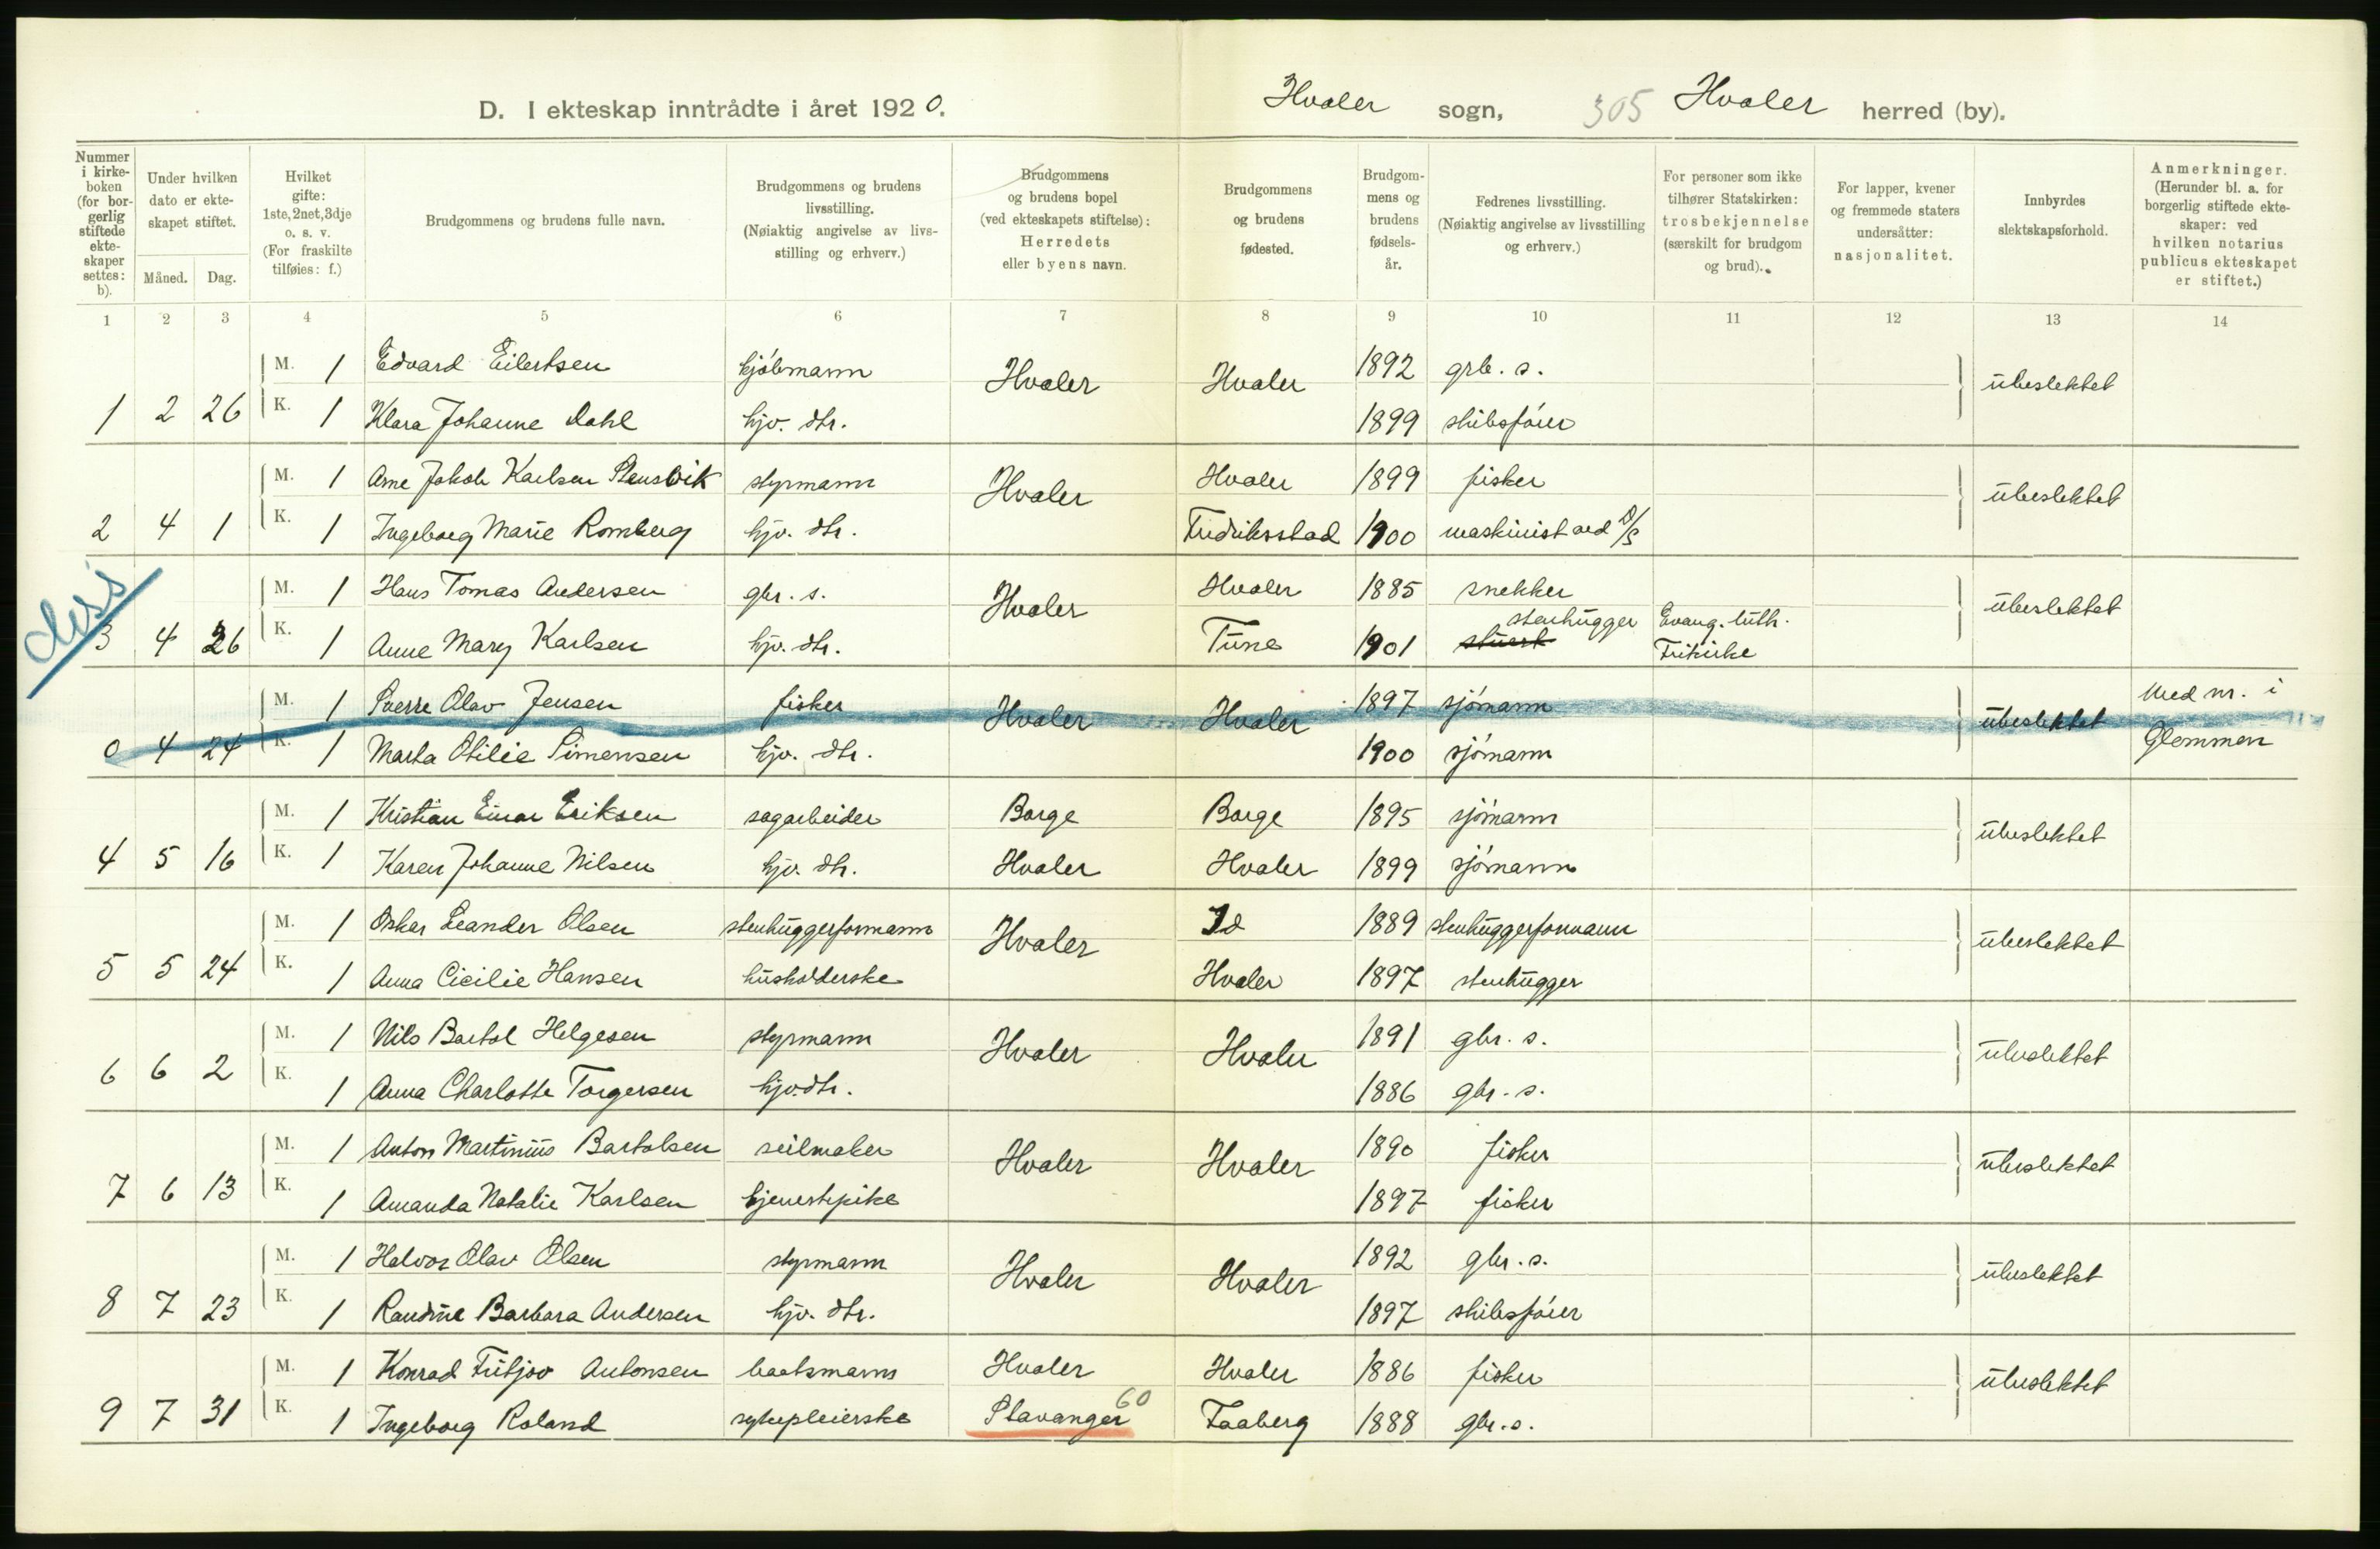 D. I ekteskap inntrådte i året 1920.
Hvaler sogn, 305 Hvaler herred (by).
Nummer i kirkeboken (for borgerlig stiftede ekteskaper settes: b).
Under hvilken dato er ekteskapet stiftet.
Måned. Dag.
Hvilket gifte: 1ste, 2net, 3dje o. s. v. (For fraskilte tilføies: f.)
Brudgommens og brudens fulle navn.
Brudgommens og brudens livsstilling. (Nøiaktig angivelse av livsstilling og erhverv.)
Brudgommens og brudens bopel (ved ekteskapets stiftelse): Herredets eller byens navn.
Brudgommens og brudens fødested.
Brudgommens og brudens fødselsår.
Fedrenes livsstilling. (Nøiaktig angivelse av livsstilling og erhverv.)
For personer som ikke tilhører Statskirken: trosbekjennelse (særskilt for brudgom og brud).
For lapper, kvener og fremmede staters undersåtter: nasjonalitet.
Innbyrdes slektskapsforhold.
Anmerkninger. (Herunder bl. a. for borgerlig stiftede ekteskaper: ved hvilken notarius publicus ekteskapet er stiftet.)
1 2 3 4 5 6 7 8 9 10 11 12 13 14
M. 1 Edvard Eilertsen kjøbmann Hvaler Hvaler 1892 grb. s. ubeslektet
1 2 26 K. 1 Klara Johanne Dahl hjv. dtr. 1899 skibsfører
M. 1 Arne Jakob Karlsen Stensvik styrmann Hvaler Hvaler 1899 fisker ubeslektet
2 4 1 K. 1 Ingeborg Marie Romberg hjv. dtr. Fredriksstad 1900 maskinist ved D/S
Diss
M. 1 Hans Tomas Andersen gbr. s. Hvaler Hvaler 1885 snekker ubeslektet
3 4 26 K. 1 Anne Mary Karlsen hjv. dtr. Tune 1901 stuert stenhugger Evang. luth. Frikirke
M. 1 Sverre Olav Jensen fisker Hvaler Hvaler 1897 sjømann ubeslektet Med nr. i
0 4 24 K. 1 Marta Otilie Simensen hjv. dtr. 1900 sjømann Glemmen
M. 1 Kristian Einar Eriksen sagarbeider Borge Borge 1895 sjømann ubeslektet
4 5 16 K. 1 Karen Johanne Nilsen hjv. dtr. Hvaler Hvaler 1899 sjømann
M. 1 Oskar Leander Olsen stenhuggerformann Hvaler Id 1889 stenhuggerformann ubeslektet
5 5 24 K. 1 Anna Cicilie Hansen husholderske Hvaler 1897 stenhugger
M. 1 Nils Bartol Helgesen styrmann Hvaler Hvaler 1891 gbr. s. ubeslektet
6 6 2 K. 1 Anna Charlotte Torgersen hjv. dtr. 1886 gbr. s.
M. 1 Anton Martinius Bartolsen seilmaker Hvaler Hvaler 1890 fisker ubeslektet
7 6 13 K. 1 Amanda Natalie Karlsen tjenestepike 1897 fisker
M. 1 Halvor Olav Olsen styrmann Hvaler Hvaler 1892 gbr. s. ubeslektet
8 7 23 K. 1 Randine Barbara Andersen hjv. dtr. 1897 skibsfører
M. 1 Konrad Fritjov Antonsen baatsmann Hvaler Hvaler 1886 fisker ubeslektet
9 7 31 K. 1 Ingeborg Roland sykepleierske Stavanger 60 Faaberg 1888 gbr. s.